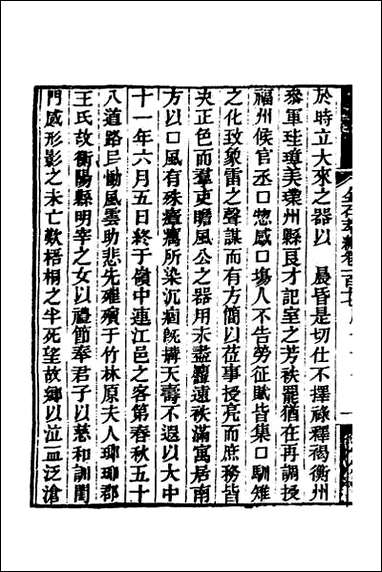 於時立大來之器以　晨昏是切仕不擇祿釋褐衡州
叅軍珪璋美璞州縣良才記室之芳祑罷猶在再調授
福州候官丞口惣感口塲人不告勞征賦皆集口馴雉
之化致象雷之聲謀而有方簡以莅事授亮而庶務皆
夬正色而羣吏瞻風公之器用未盡鹽遠祑滿寓居南
方以口風有殊瘴癘所染沉痼旣搆天壽不遐以大中
十一年六月五日終于嶺中連江邑之客第春秋五十
八道路巨慟風雲助悲先雄殯于竹林原夫人瑯瑘郡
王氏故衡陽縣明宰之女以禮節奉君子以慈和訓閨
門感形影之未亡歎梧桐之半死望故鄉以泣血泛滄
金石萃編卷一百十七